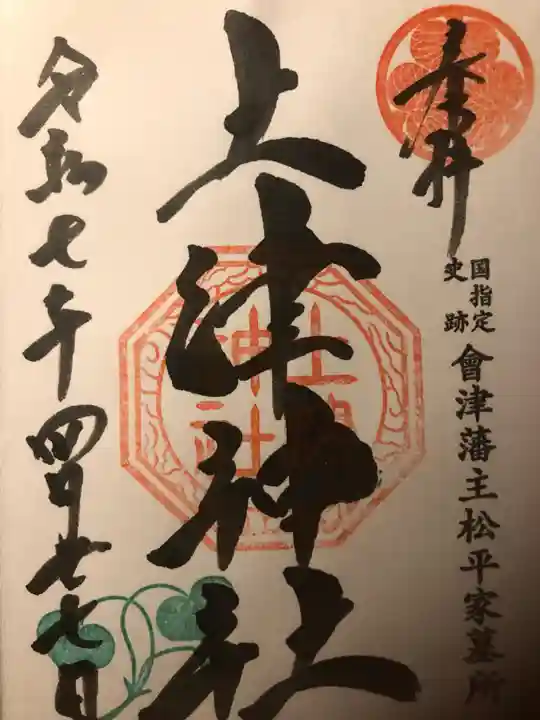 奉拝
国指定
史跡
會津藩主松平家墓所
土津神社
土津
神社
令和七年四月廿七日